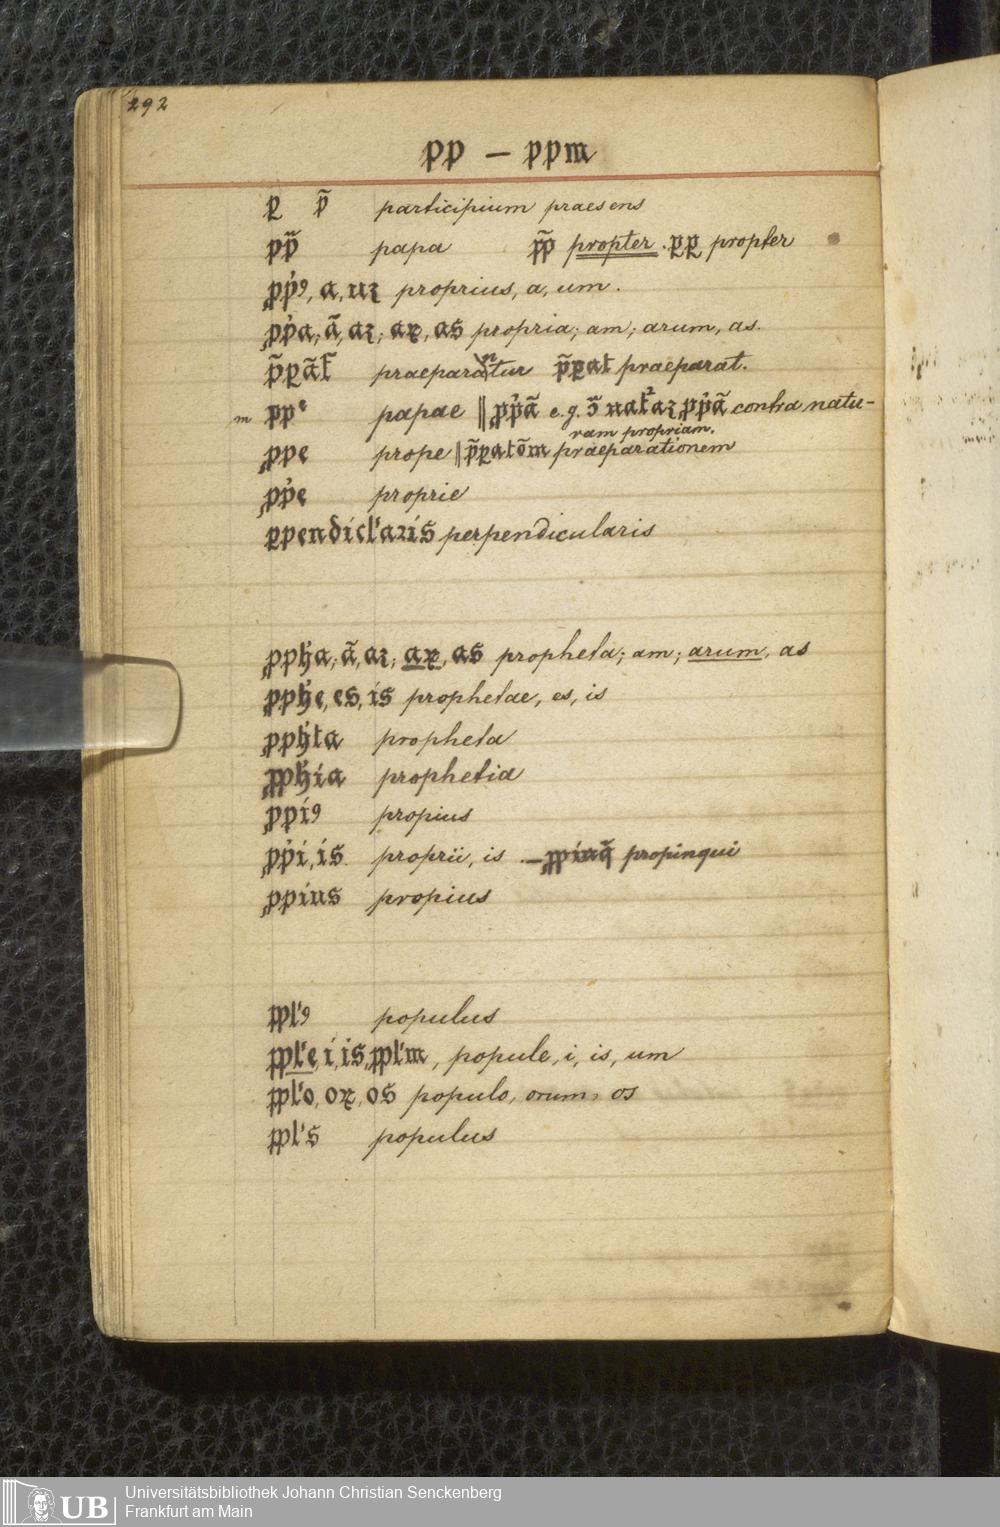 292
pp — ppm
ꝑ p̃ participium praesens
pp̃ papa p̃p propter . ꝑꝑ propter
ꝓp̓ꝰ, a, uꝫ proprius, a, um.
ꝓp̓a; ã, aꝫ; aꝝ, as propria; am; arum, as.
p̃ꝑãt̃ praeparantur p̃ꝑat praeparat.
m ppᵉ papae || ꝓp̓ã e.g. 3̃ nat̃²aꝫ ꝓp̓ã contra natu-
ram propriam.
ꝓpe prope || p̃ꝑatõm praeparationem
ꝓp̓e proprie
ꝑpendicl'aris perpendicularis
ꝓpħa; ã, aꝫ; aꝝ, as propheta; am; arum, as
ꝓpħe, es, is prophetae, es, is
ꝓpħta propheta
ꝓpħia prophetia
ꝓpiꝰ propius
ꝓp̓i, is proprii, is . — ꝓpinq̃ propinqui
ꝓpius propius
ppl'ꝰ populus
ppl'e, i, is, ppl'm, popule, i, is, um
ppl'o, oꝝ, os populo, orum, os
ppl's populus
UB Universitätsbibliothek Johann Christian Senckenberg
Frankfurt am Main